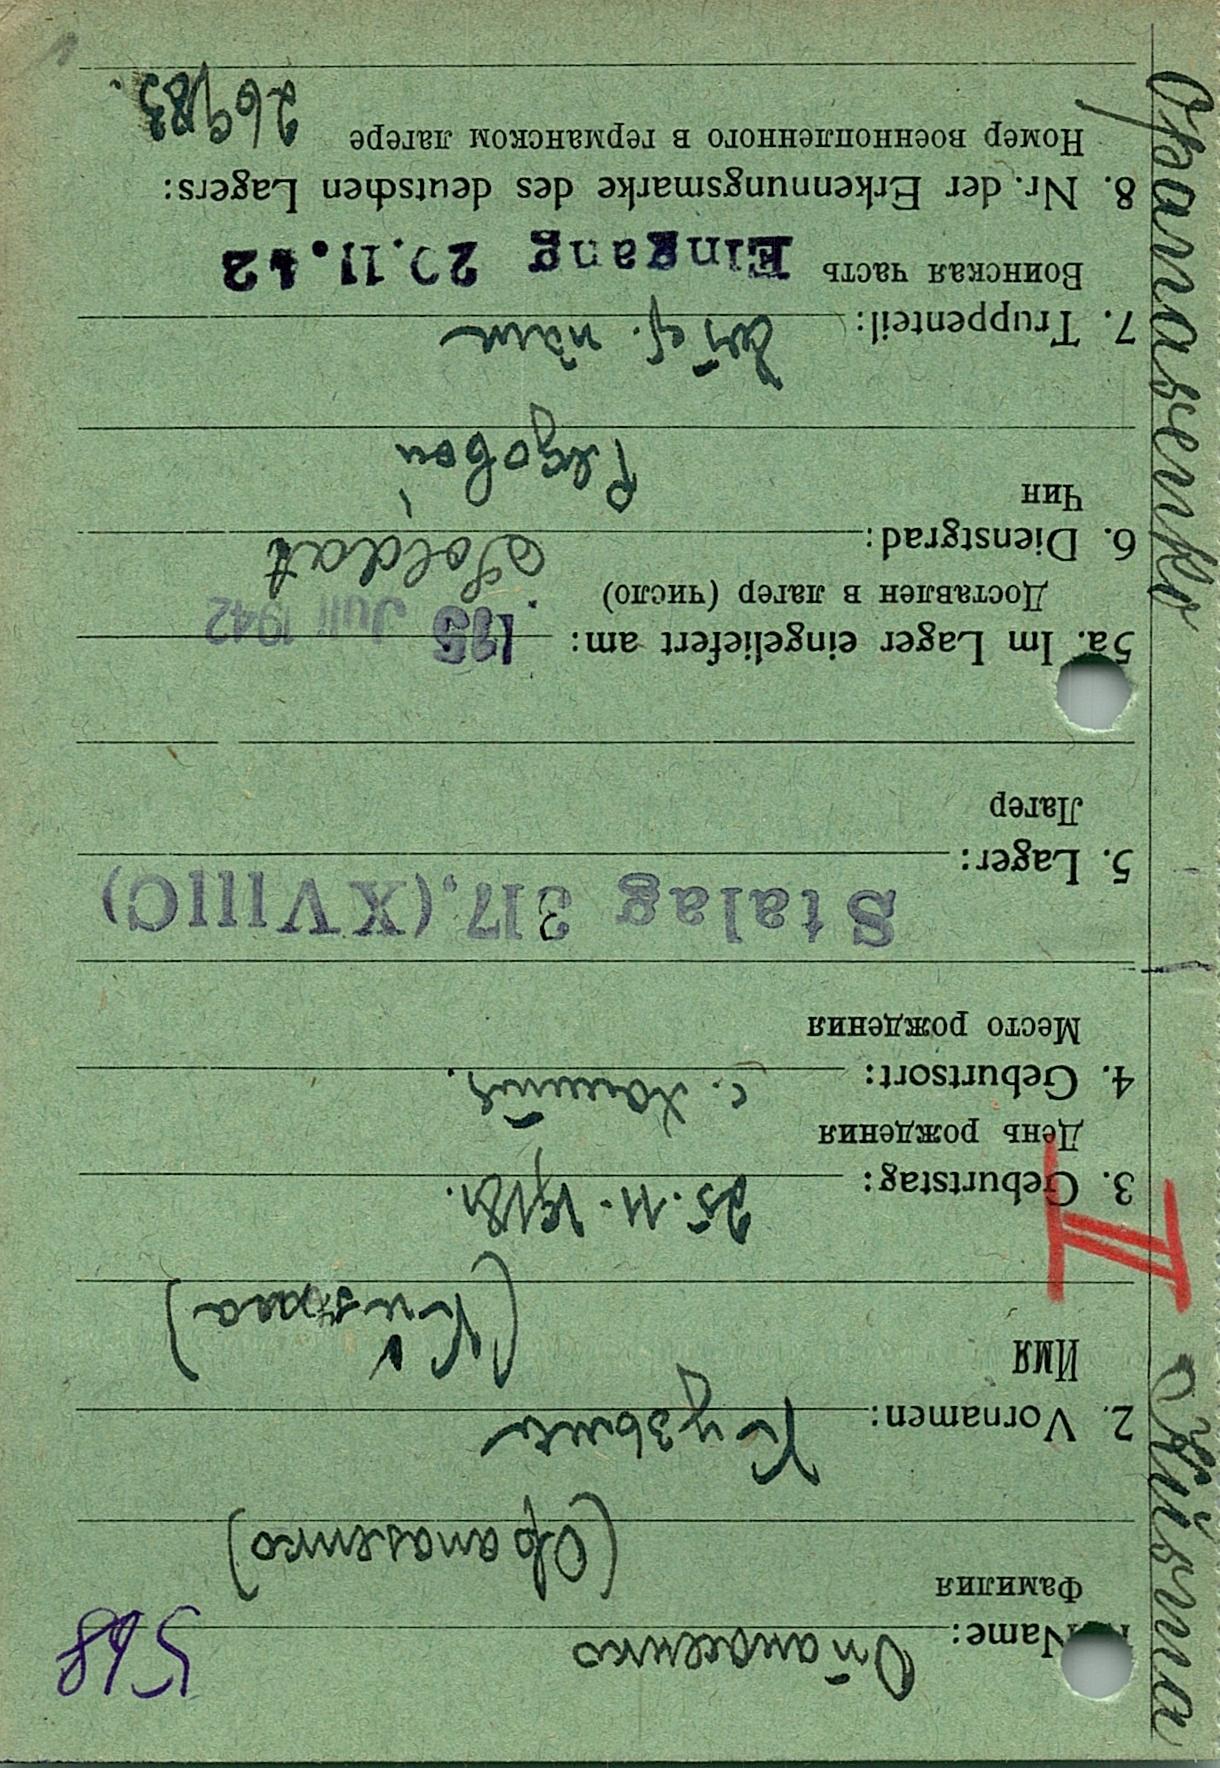 568
Name: Опанасенко
Фамилия
(Opanasenko)
2. Vornamen: Кузьма
Имя
(Kusma)
3. Geburtstag: 25.11.1918.
День рождения
II
4. Geburtsort:
Место рождения
Stalag 317. (XVIIIC)
5. Lager:
Лагер
5a. Im Lager eingeliefert am: Juli 1942
Доставлен в лагер (число)
Soldat
6. Dienstgrad:
Чин
Рядовой
7. Truppenteil:
Воинская часть Eingang 20.11.42
8. Nr. der Erkennungsmarke des deutschen Lagers:
Номер военнопленного в германском лагере
Opanasenko Kusma